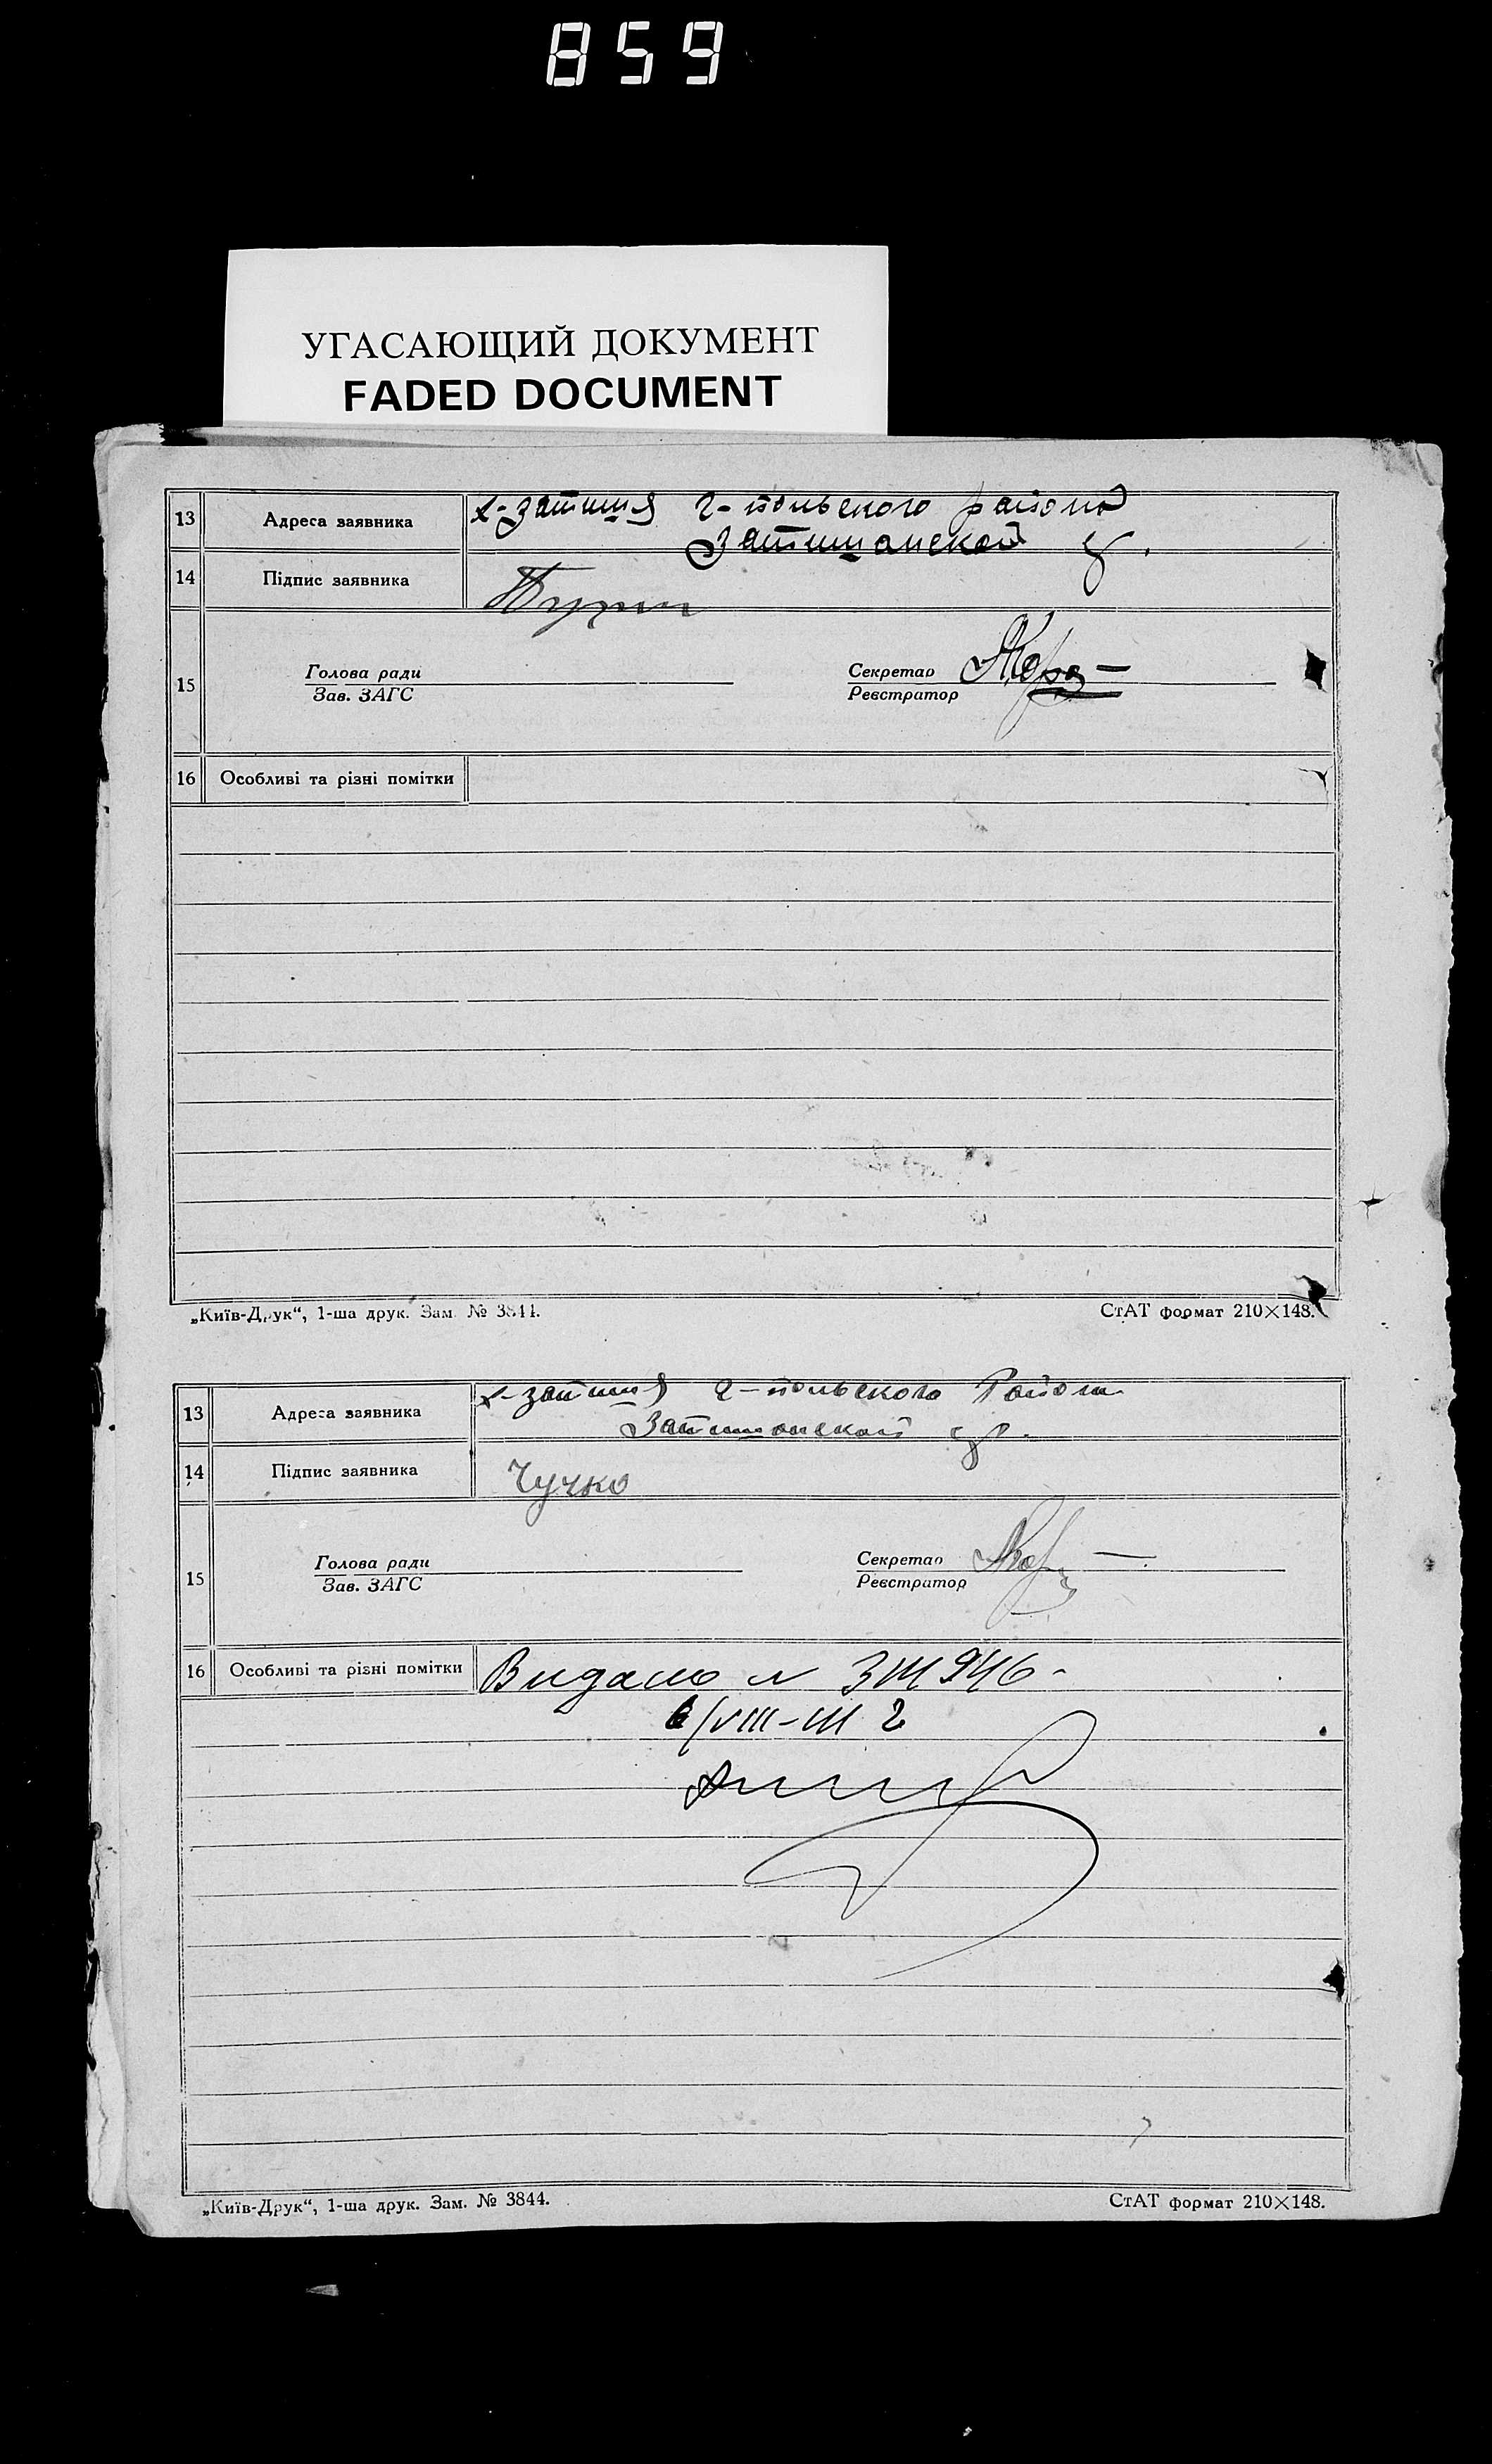 859
УГАСАЮЩИЙ ДОКУМЕНТ
FADED DOCUMENT
13 Адреса заявника х-затишя г-польского района
Затишанской
14 Підпис заявника
15 Голова ради Секретар
Зав. ЗАГС Реєстратор
16 Особливі та різні помітки
„Київ-Друк“, 1-ша друк. Зам. № 3844. СтАТ формат 210×148.
13 Адреса заявника х-затишя г-польского Района
Затишанской
14 Підпис заявника Чучко
15 Голова ради Секретар
Зав. ЗАГС Реєстратор
16 Особливі та різні помітки Видано
„Київ-Друк“, 1-ша друк. Зам. № 3844. СтАТ формат 210×148.